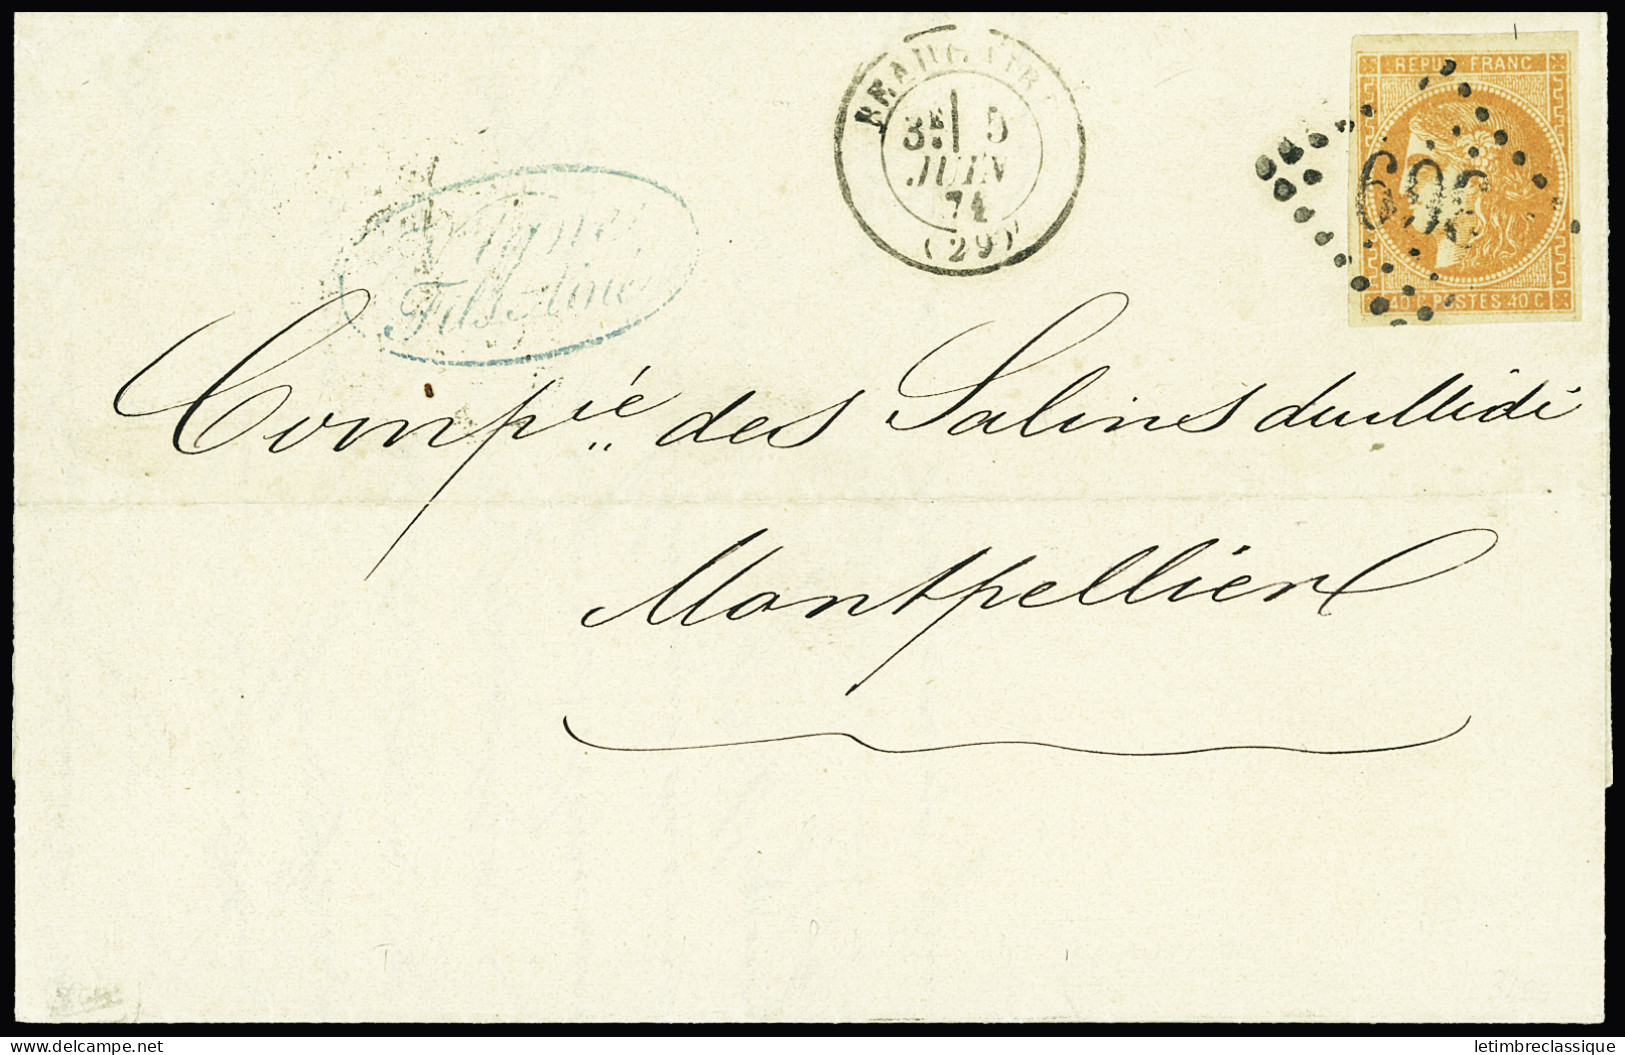 BEAUCAIRE
3E 5
JUIN
71
(29)
REPUB FRANC
698
40 C POSTES 40 C
Fils Ainé
Compie des Salins du Midi
Montpellier
www.delcampe.net
letimbreclassique